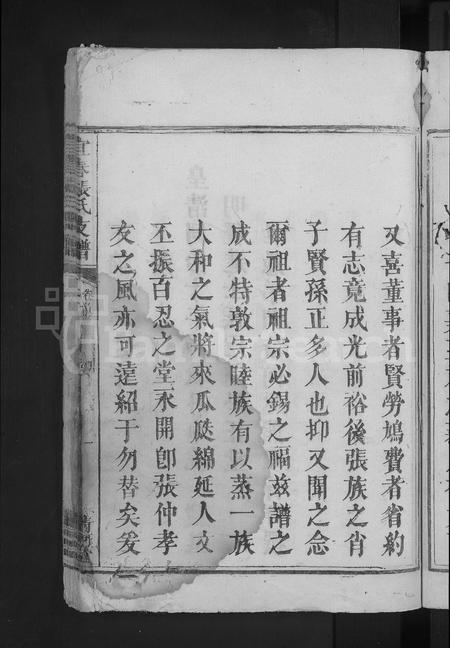 又喜董事者賢勞鳩費者省約
有志竟成光前裕後張族之肖
子賢孫正多人也抑又聞之念
爾祖者祖宗必錫之福茲譜之
成不特敦宗睦族有以蒸一族
大和之氣將來瓜瓞綿延人文
丕振百忍之堂永開卽張仲孝
友之風亦可遠紹于勿替矣爰
張氏支譜